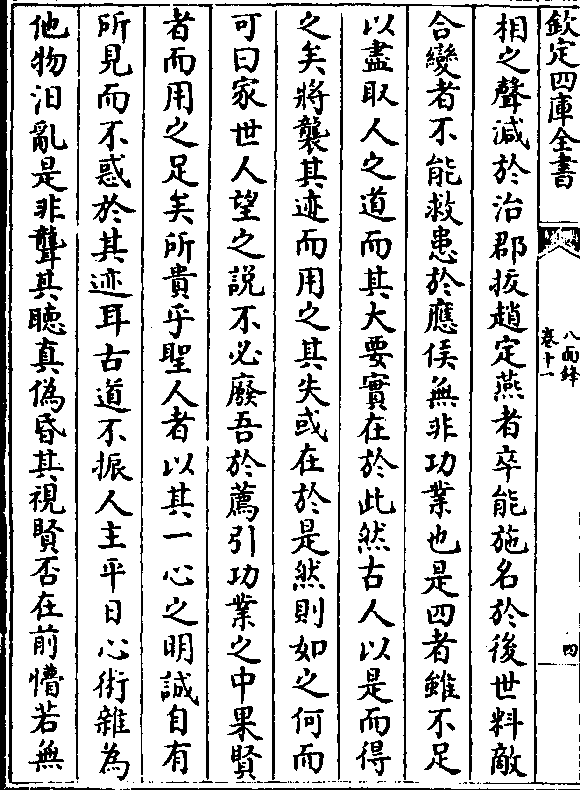 欽定四庫全書
八面鋒
卷十一
四
相之聲減於治郡拔趙定燕者卒能施名於後世料敵
合變者不能救患於應侯無非功業也是四者雖不足
以盡取人之道而其大要實在於此然古人以是而得
之矣將襲其迹而用之其失或在於是然則如之何而
可曰家世人望之説不必廢吾於薦引功業之中果賢
者而用之足矣所貴乎聖人者以其一心之明誠自有
所見而不惑於其迹耳古道不振人主平日心術雜為
他物汨亂是非聾其聽真偽昏其視賢否在前懵若無